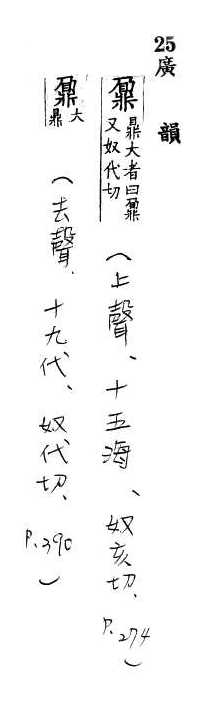 25廣韻
鼐鼎大者曰鼐又奴代切(上聲、十五海、奴亥切、P.274)
鼐大鼎(去聲、十九代、奴代切、P.390)